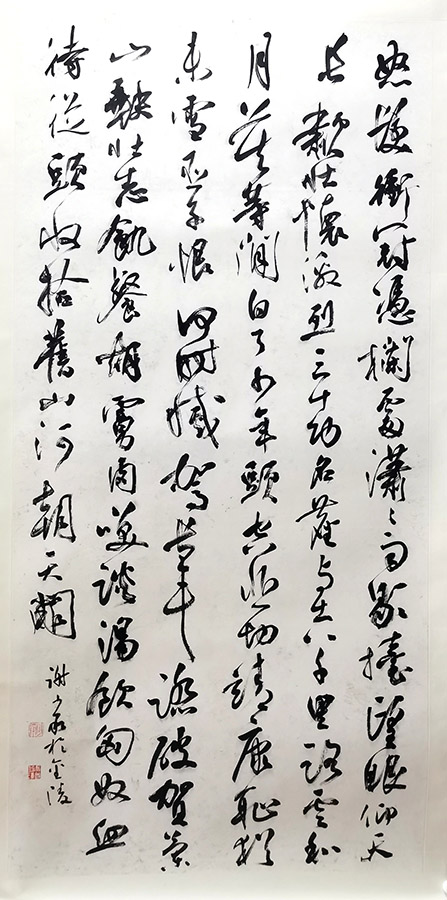 怒髮衝冠憑欄處瀟々雨歇擡望眼仰天
長嘯壯懷激烈三十功名塵与土八千里路雲和
月莫等閑白了少年頭空悲切靖康恥猶
未雪臣子恨何時滅駕長車踏破賀蘭
山缺壯志飢餐胡虜肉笑談渴飲匈奴血
待從頭收拾舊山河朝天闕
謝少承於金陵